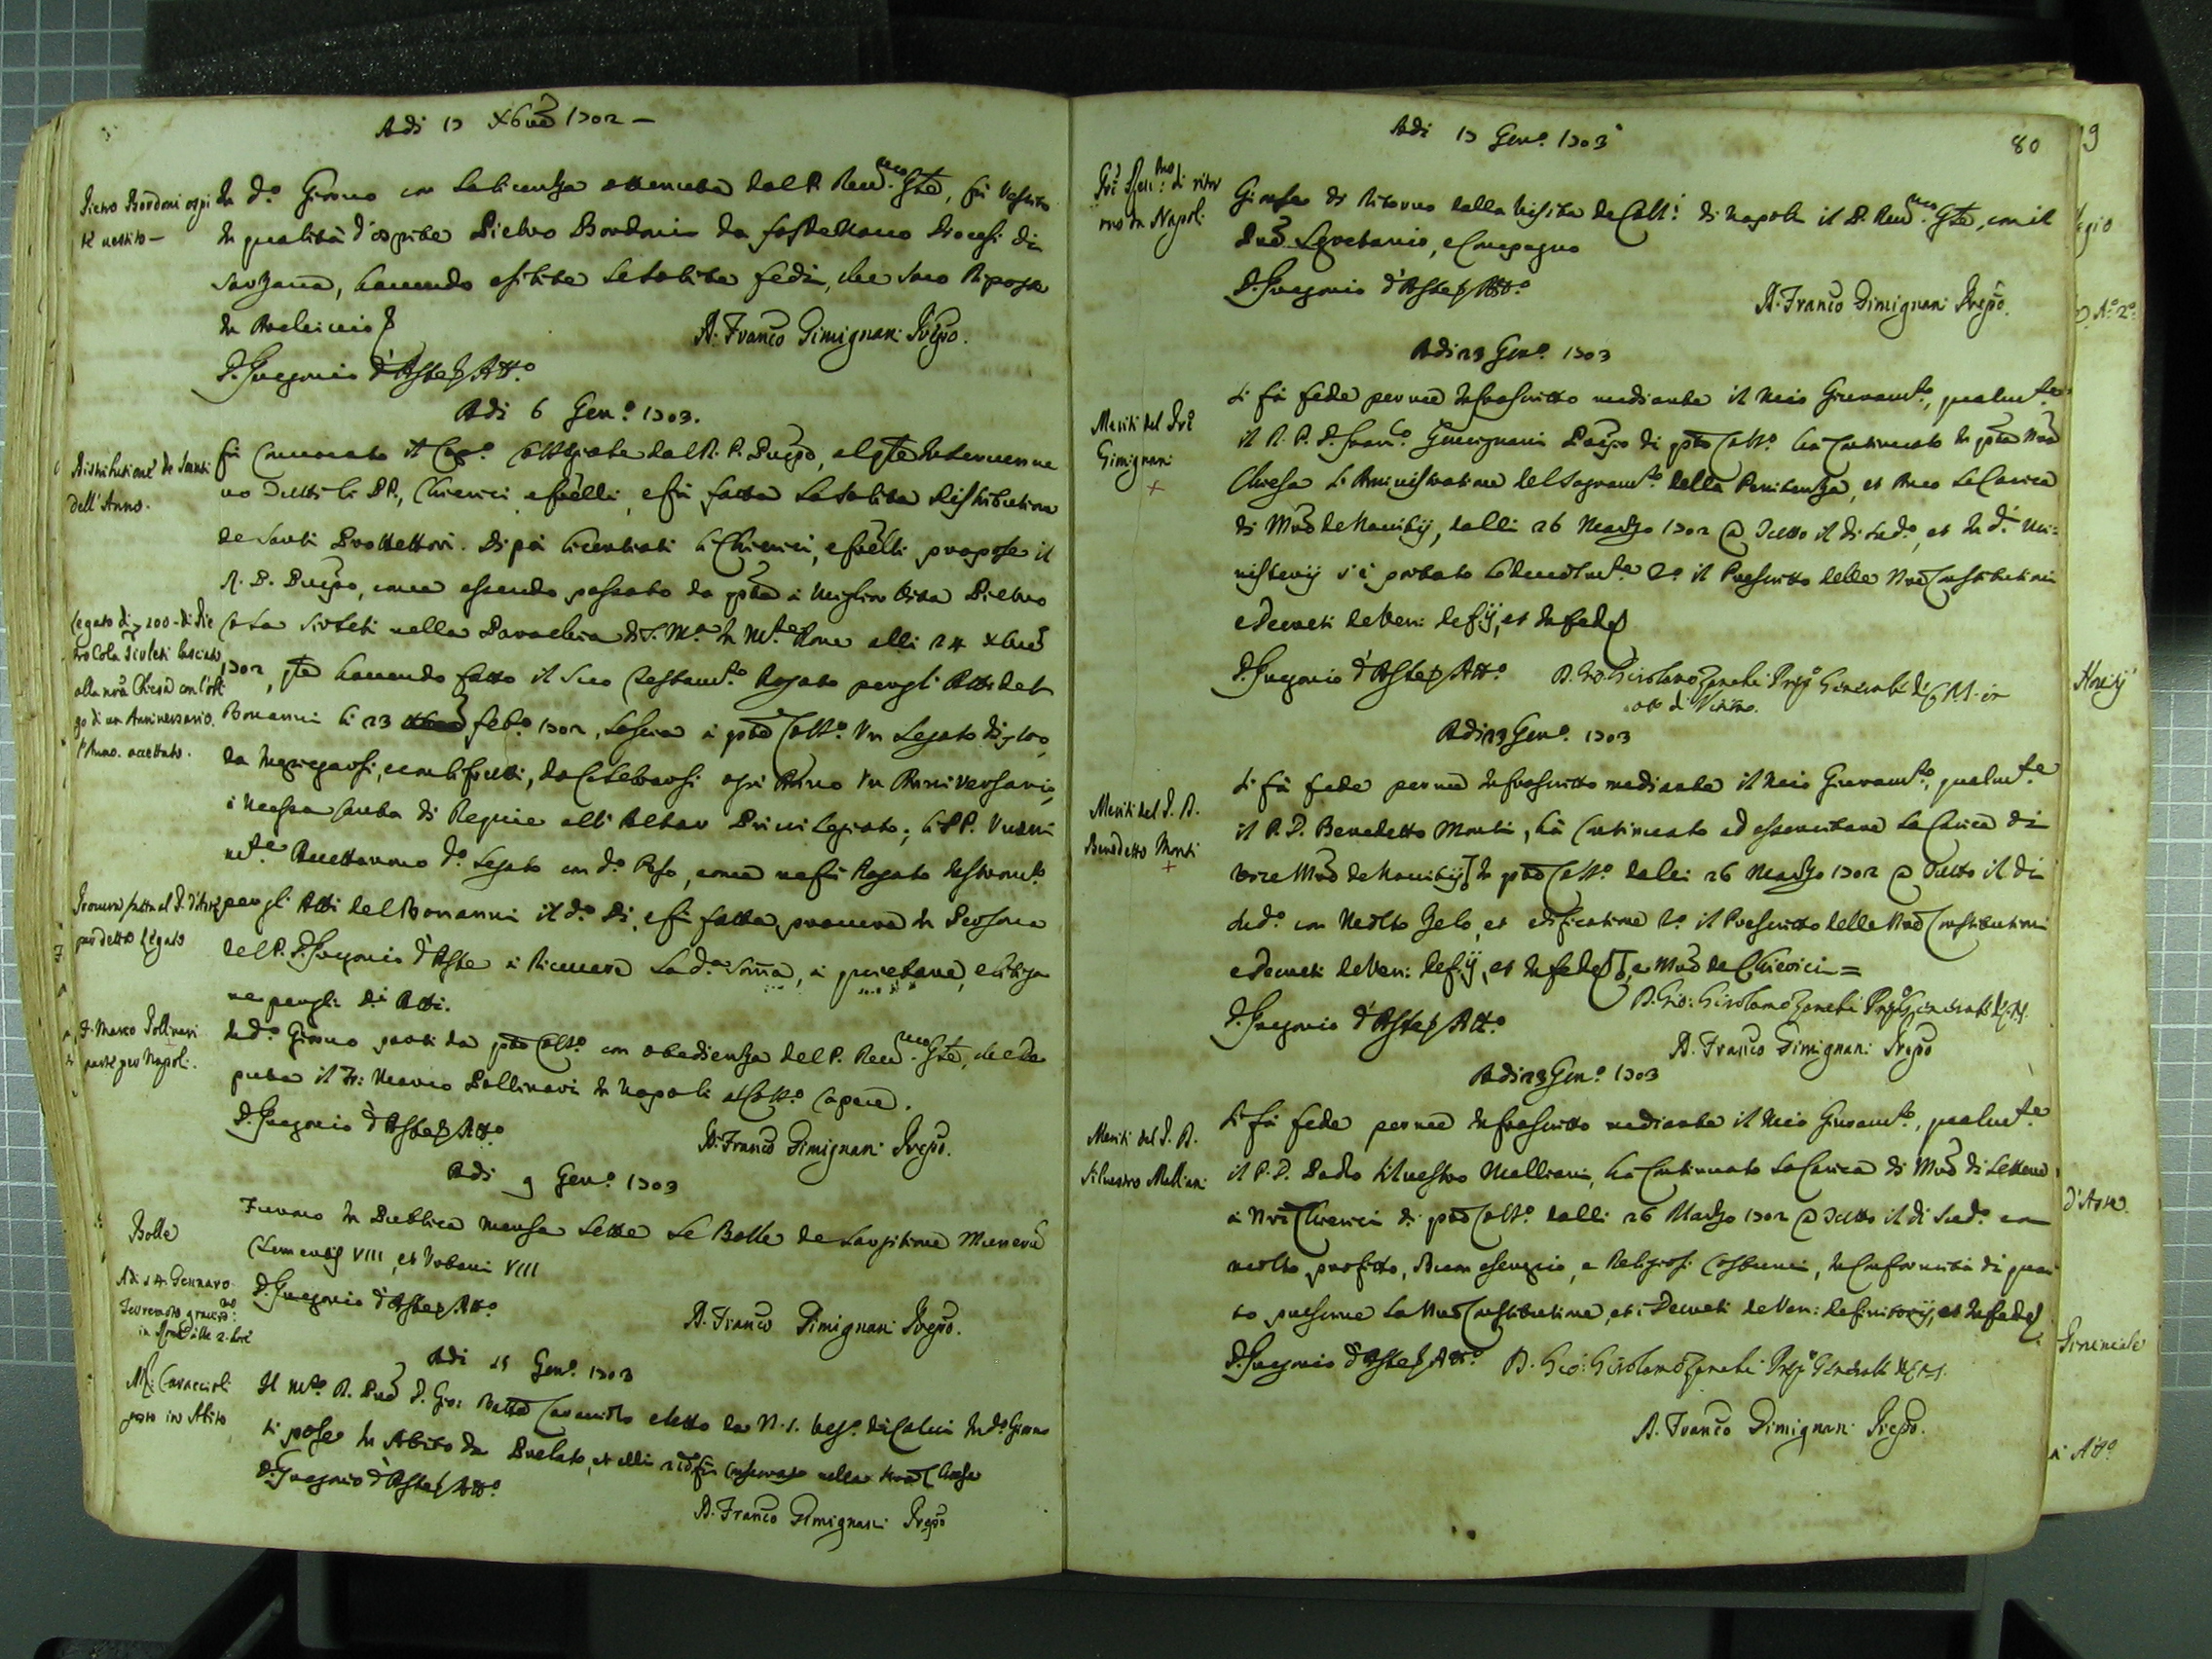 Adi 17 Xbre 1702 –
Pietro Bordoni ospi
te vestito –
In d.º Giorno con la licenza ottenuta dal P. Rev.mo Gñle, fù vestito
in qualità d'ospite Pietro Bordoni da Castelnuovo Diocesi di
Sarzana, havendo esibite le solite fedi, che sono riposte
in Archivio
D. Gregorio d'Aste Att.º
D. Franco Gimignani Prepo.
Adi 6 Gen.º 1703.
Distributione de Santi
dell'Anno.
Fù convocato il Cap.º Collegiale dal R. P. Prepo, al qle intervenne
ro tutti li PP., Chierici, e frelli, e fù fatta la solita distributione
de Santi Protettori. Di poi licentiati li Chierici, e frelli, propose il
R. P. Prepo, come essendo passato da qta a miglior vita Pietro
Legato di 200 – di Pie
tro Cola Sivleti lasciato
alla nrã Chiesa con l'obli
go di un Anniversario
l'Anno. accettato.
Cola Sivleti nella Parochia di S. M.ª in M.te alli 24 Xbre
1702, qle havendo fatto il suo testam.to rogato per gl'Atti del
Bonanni li 23 feb.º 1702, lascia à qto Coll.º un legato di 200
da rinvestirsi, con li frutti, da celebrarsi ogni Anno un Anniversario,
e Messa cantata di Requie all'Altar Privilegiato; li PP. unani
m.te accettarono d.º legato con d.º peso, come ne fù rogato instrom.to
Procura fatta al P. d'Aste
per detto Legato
per gli Atti del Bonanni il d.º di, e fù fatta procura in persona
del P. D. Gregorio d'Aste à ricevere la d.ª somma, à quietare, e
per gli d.i Atti.
F. Marco Pollinari
parte per Napoli.
In d.º Giorno partì da qto Coll.º con obedienza del P. Rev.mo Gñle,
il Fr: Marco Pollinari in Napoli al Coll.º Capece.
D. Gregorio d'Aste Att.º
D. Franco Gimignani Prepo.
Adi 9 Gen.º 1703
Bolle
Furono in Publica mensa lette le Bolle de largitione Munerũ
Clementis VIII, et Urbani VIII
D. Gregorio d'Aste Att.º
D. Franco Gimignani Prepo.
Adi 14 Gennaro
Terremoto graviss.mo
in Roma alle 2. hore
Adi 15 Gen.º 1703
M.r Caraccioli
posto in Abito
Il M.to R. Pre D. Gio: Batta Caracciolo eletto da N. S. Vesc.º di in d.º Giorno
si pose in Abito da Prelato, et alli 21 fù consecrato nella nrã Chiesa
D. Gregorio d'Aste Att.º
D. Franco Gimignani Prepo
80
Adi 17 Gen.º 1703
Pre Gen.mo di ritor
no da Napoli
Giunse di ritorno dalla visita de Coll.i di Napoli il P. Rev.mo Gñle, con il
Pre Segretario, e Compagno
D. Gregorio d'Aste Att.º
D. Franco Gimignani Prepo.
Adi 23 Gen.º 1703
Meriti del Pre
Gimignani
+
Si fà fede per me infrascritto mediante il mio Giuram.to, qualm.te
il R. P. D. Fran.co Gimignani Prepo di qto Coll.º hà continuato in qta nrã
Chiesa l'Aministratione del Sagram.to della Penitenza, et anco la Carica
di Mrõ de Novitij, dalli 26 Marzo 1702 @ tutto il di sud.º, et in d.i Mi=
nisterij s'è portato lodevolm.te s.º il prescritto delle nrẽ Constitutioni
e Decreti de Ven: Def.ij, et in fede
D. Gregorio d'Aste Att.º
D. Gio: Girolamo Zanchi Prep.º Generale
Adi 23 Gen.º 1703
Meriti del P. D.
Benedetto Monti
+
Si fà fede per me infrascritto mediante il mio Giuram.to, qualm.te
il P. D. Benedetto Monti, hà continuato ad essercitare la Carica di
vice Mrõ de Novitij in qto Coll.º dalli 26 Marzo 1702 @ tutto il di
sud.º con molto zelo, et edificatione s.º il prescritto delle nrẽ Constitutioni
e Decreti de Ven: Def.ij, et in fede e Mrõ de Chierici =
D. Gregorio d'Aste Att.º
D. Gio: Girolamo Zanchi Prep.º Generale
D. Franco Gimignani Prepo
Adi 23 Gen.º 1703
Meriti del P. D.
Silvestro Malliani
Si fà fede per me infrascritto mediante il mio Giuram.to, qualm.te
il P. D. Silvestro Malliani, hà continuato la Carica di Mrõ di Lettere
à nrĩ Chierici di qto Coll.º dalli 26 Marzo 1702 @ tutto il di sud.º con
molto profitto, buon esempio, e religiosi costumi, in conformità di quan
to prescrive la nrã Constitutione, et i Decreti de Ven: Definitorij, et in fede
D. Gregorio d'Aste Att.º
D. Gio: Girolamo Zanchi Prep.º Generale
D. Franco Gimignani Prepo.
d'Aste.
Att.º